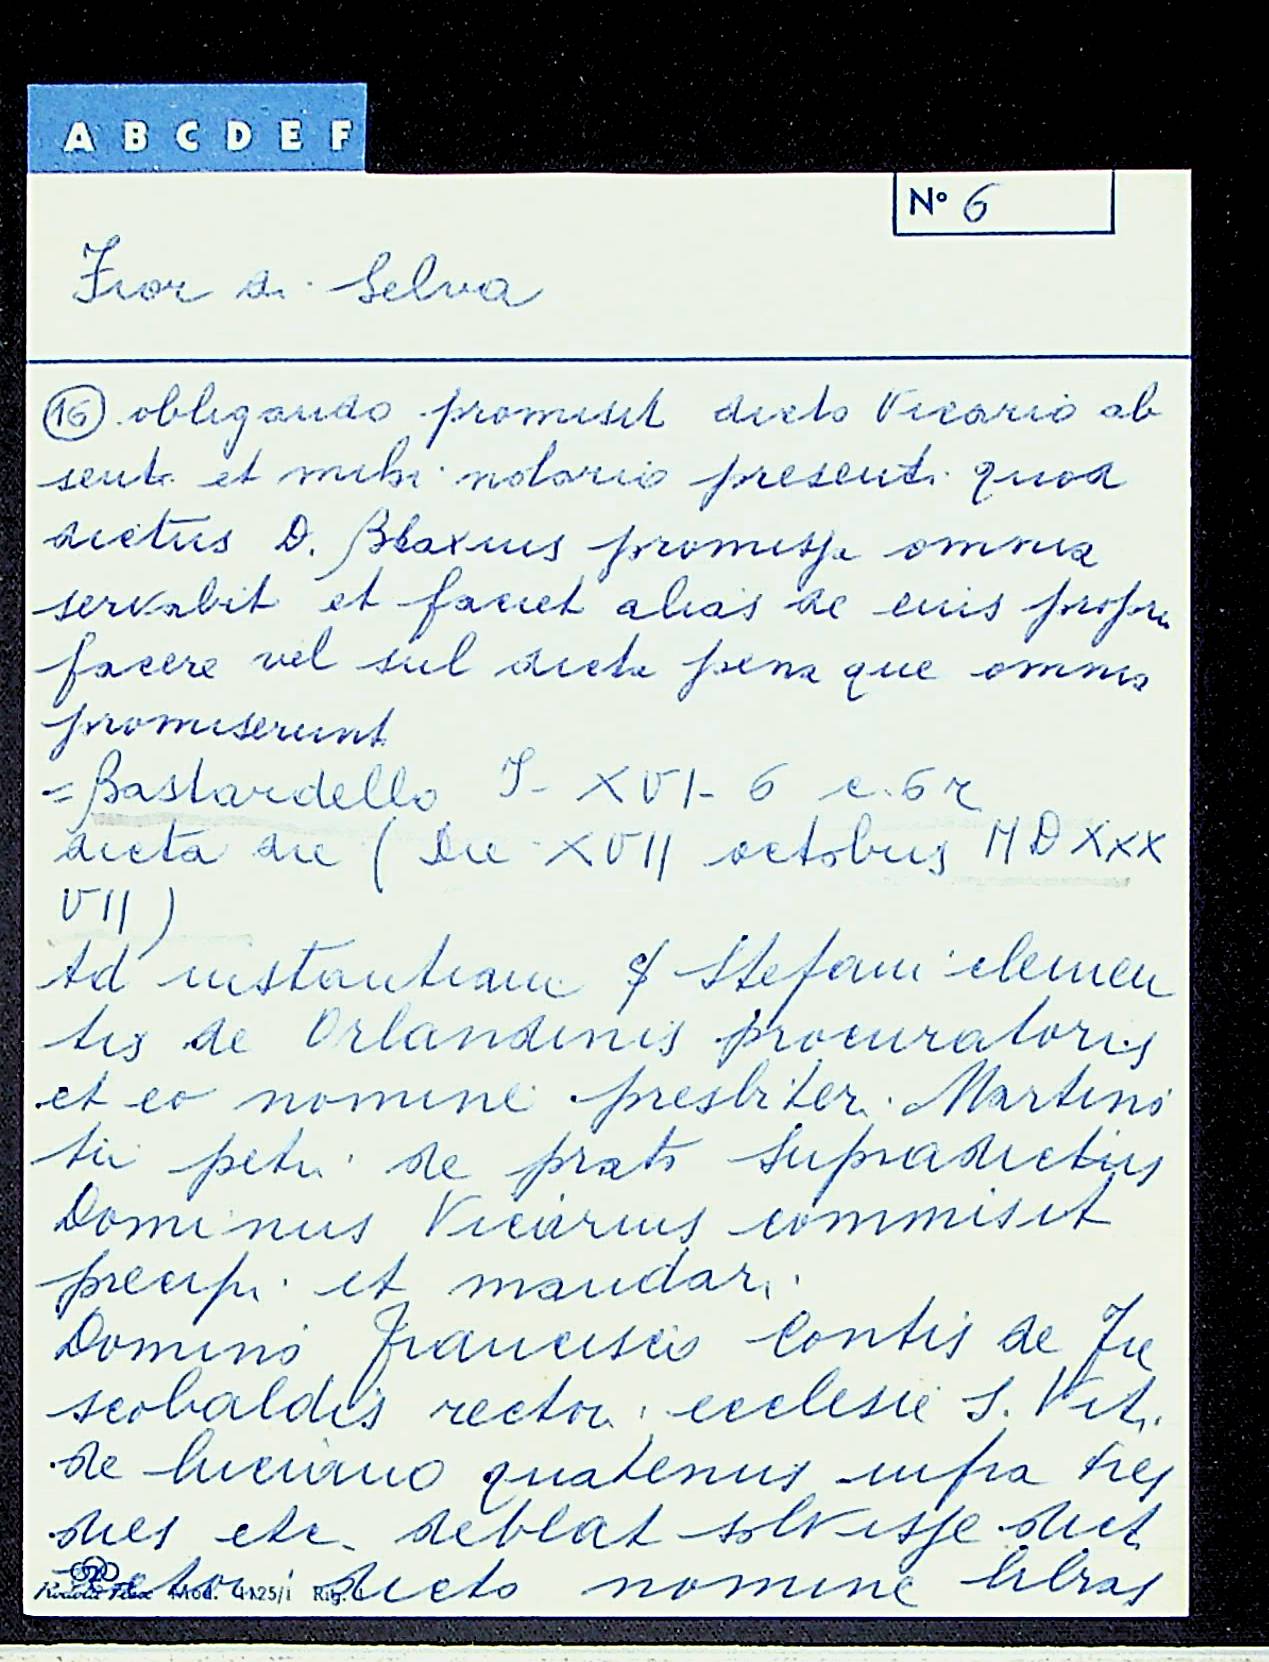 A B C D E F
N° 6
Fior di Selva
16 obligando promisit dicto Vicario ab
senti et mihi notario presenti quod
dictus D. Blaxius promissa omnia
servabit et faciet alias de eius propri
facere vel sul dicta pena que omnia
promiserunt
= Bastardello I - XVI - 6 c. 6 r
dicta die ( Die XVII octobris MDXXX
VII )
Ad instantiam Stefani clemen
tis de Orlandinis procuratoris
et eo nomine presbiteri Martino
tii petri de prato supradictus
Dominus Vicarius commisit
precipi et mandari
Domino Francisco Contis de Fre
scobaldis rectori ecclesie S. Viti
de luciano quatenus infra tres
dies etc. debeat solvisse dict
dicto nomine libras
Mod. 4125/1 Rig.